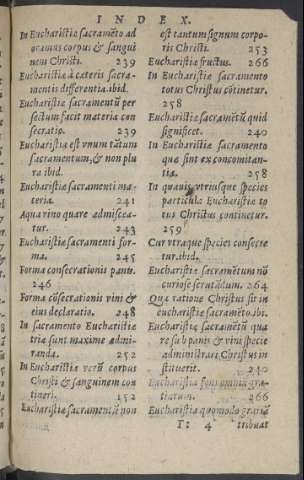 INDEX.
In Euchariſtiæ ſacramẽto ad
oramus corpus & ſangui
nem Chriſti. 239
Euchariſtiæ à cæteris ſacra-
mentis differentia. ibid.
Euchariſtiæ ſacramentũ per
fectum facit materiæ con
ſecratio. 239
Euchariſtia eſt vnum tãtum
ſacramentum, & non plu
ra ibid.
Euchariſtiæ ſacramenti ma-
teria. 241
Aqua vino quare admiſcea-
tur. 243
Euchariſtiæ ſacramenti for-
ma. 245
Forma conſecrationis panis.
246
Forma cõſecrationis vini &
eius declaratio. 248
In ſacramento Euchariſtiæ
tria ſunt maxime admi-
randa. 252
In Euchariſtia verũ corpus
Chriſti & ſanguinem con
tineri. 152
Euchariſtiæ ſacramentũ non
eſt tantum ſignum corpo-
ris Chriſti. 253
Euchariſtiæ fructus. 266
In Euchariſtiæ ſacramento
totus Chriſtus cõtinetur.
258
Euchariſtiæ ſacramẽtũ quid
ſignificet. 240
In Euchariſtiæ ſacramento
quæ ſint ex concomitan-
tia. 258
In quauis vtriuſque ſpeciei
particula Euchariſtiæ to
tus Chriſtus continetur.
259
Cur vtraque ſpecies conſecre
tur. ibid.
Euchariſtiæ ſacramẽtum nõ
curioſe ſcrutãdum. 264
Qua ratione Chriſtus ſit in
euchariſtiæ ſacramẽto. ibi.
Euchariſtiæ ſacramẽtũ qua
re ſub panis & vini ſpecie
adminiſtrari Chriſtus in
ſtituerit. 240
Euchariſtia fons omniũ gra-
tiarum. 266
Euchariſtia quomodo gratiã
4 tribuat